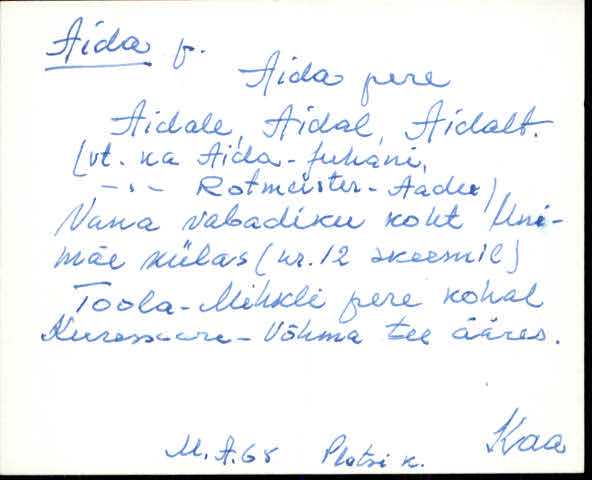 Aida p.
Aida pere
Aidale, Aidal, Aidalt.
(vt. ka Aida-Juhani,
–,,– Rotmeister-Aadu)
Vana vabadiku koht Uni-
mäe külas (nr. 12 skeemil)
Toola-Mihkli pere kohal
Kuressaare-Võhma tee ääres.
Kaa
M.A.68 Platsi k.